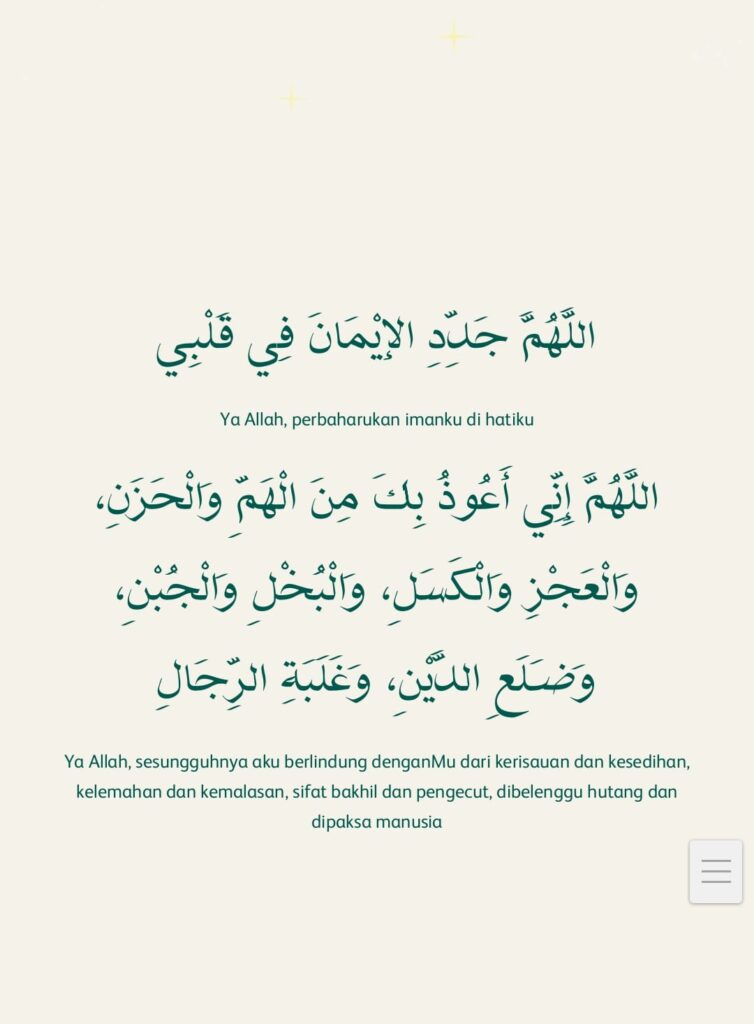 اللَّهُمَّ جَدِّدِ الإِيْمَانَ فِي قَلْبِي
Ya Allah, perbaharukan imanku di hatiku
اللَّهُمَّ إِنِّي أَعُوذُ بِكَ مِنَ الْهَمِّ وَالْحَزَنِ،
وَالْعَجْزِ وَالْكَسَلِ، وَالْبُخْلِ وَالْجُبْنِ،
وَضَلَعِ الدَّيْنِ، وَغَلَبَةِ الرِّجَالِ
Ya Allah, sesungguhnya aku berlindung denganMu dari kerisauan dan kesedihan,
kelemahan dan kemalasan, sifat bakhil dan pengecut, dibelenggu hutang dan
dipaksa manusia